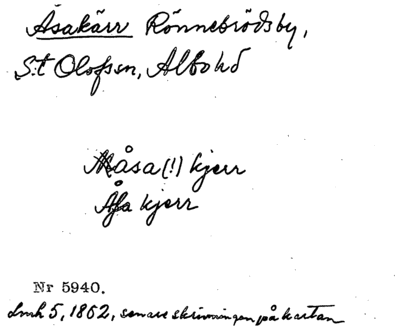 Åsakärr Rönnebrödsby,
S:t Olofssn, Albo hd
Måsa (!) kjerr
Åsa kjerr
Nr 5940.
Lmh 5, 1862, senare skrivningen på kartan